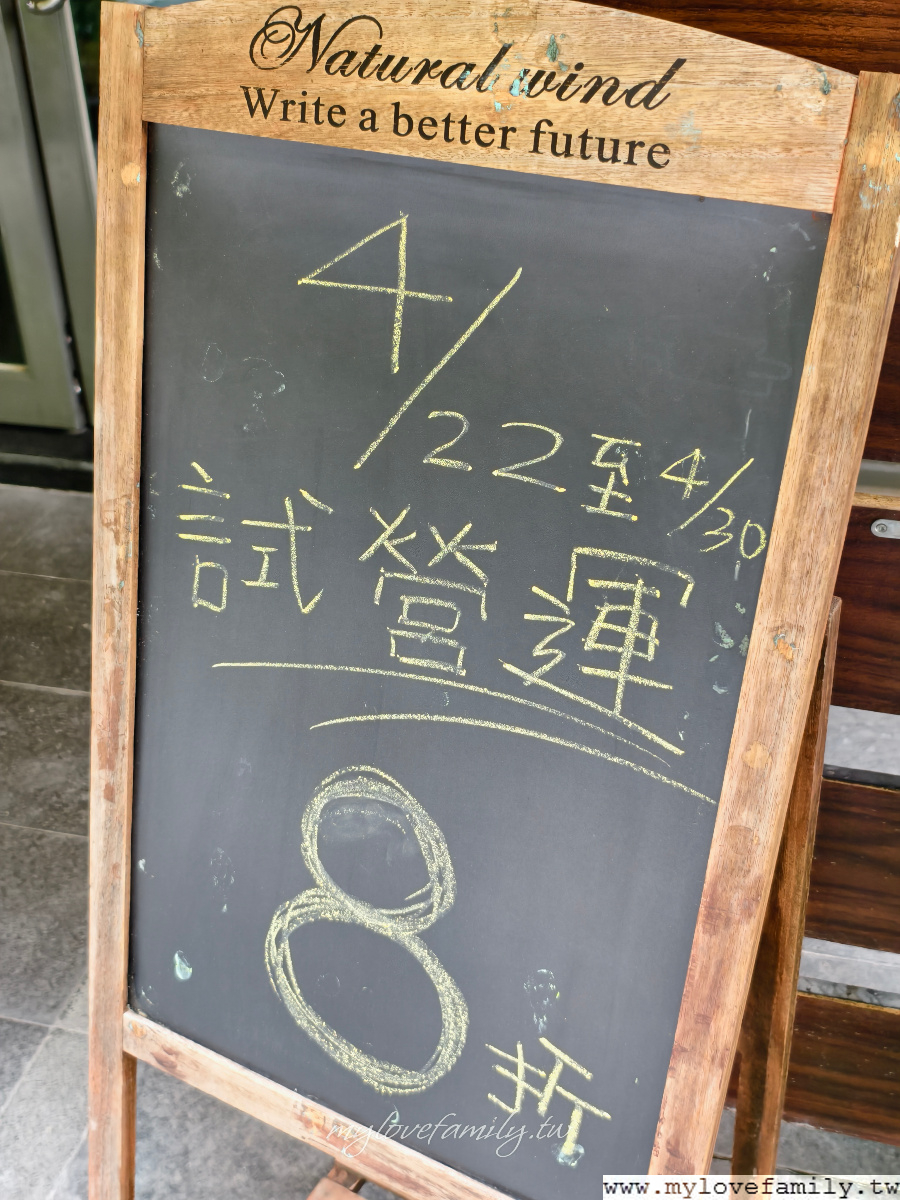 Natural wind
Write a better future
4/22至4/30
試營運
8折
mylovefamily.tw
www.mylovefamily.tw